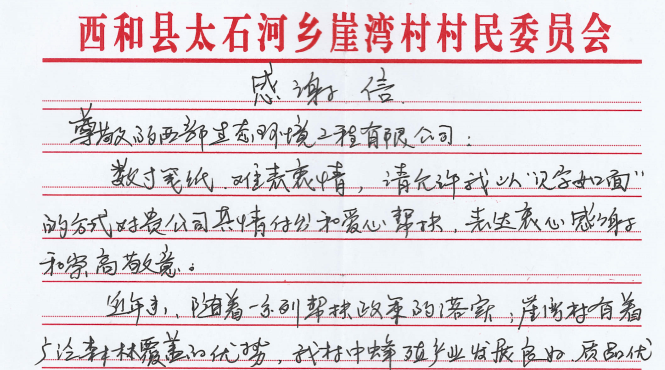 西和县太石河乡崖湾村村民委员会
感谢信
尊敬的西部生态环境工程有限公司：
数寸笺纸、难表衷情，请允许我以“见字如面”
的方式对贵公司真情付出和爱心帮扶，表达衷心感谢
和崇高敬意。
近年来，随着一系列帮扶政策的落实，崖湾村有着
广泛森林覆盖的优势，我村中蜂殖产业发展良好、质品优